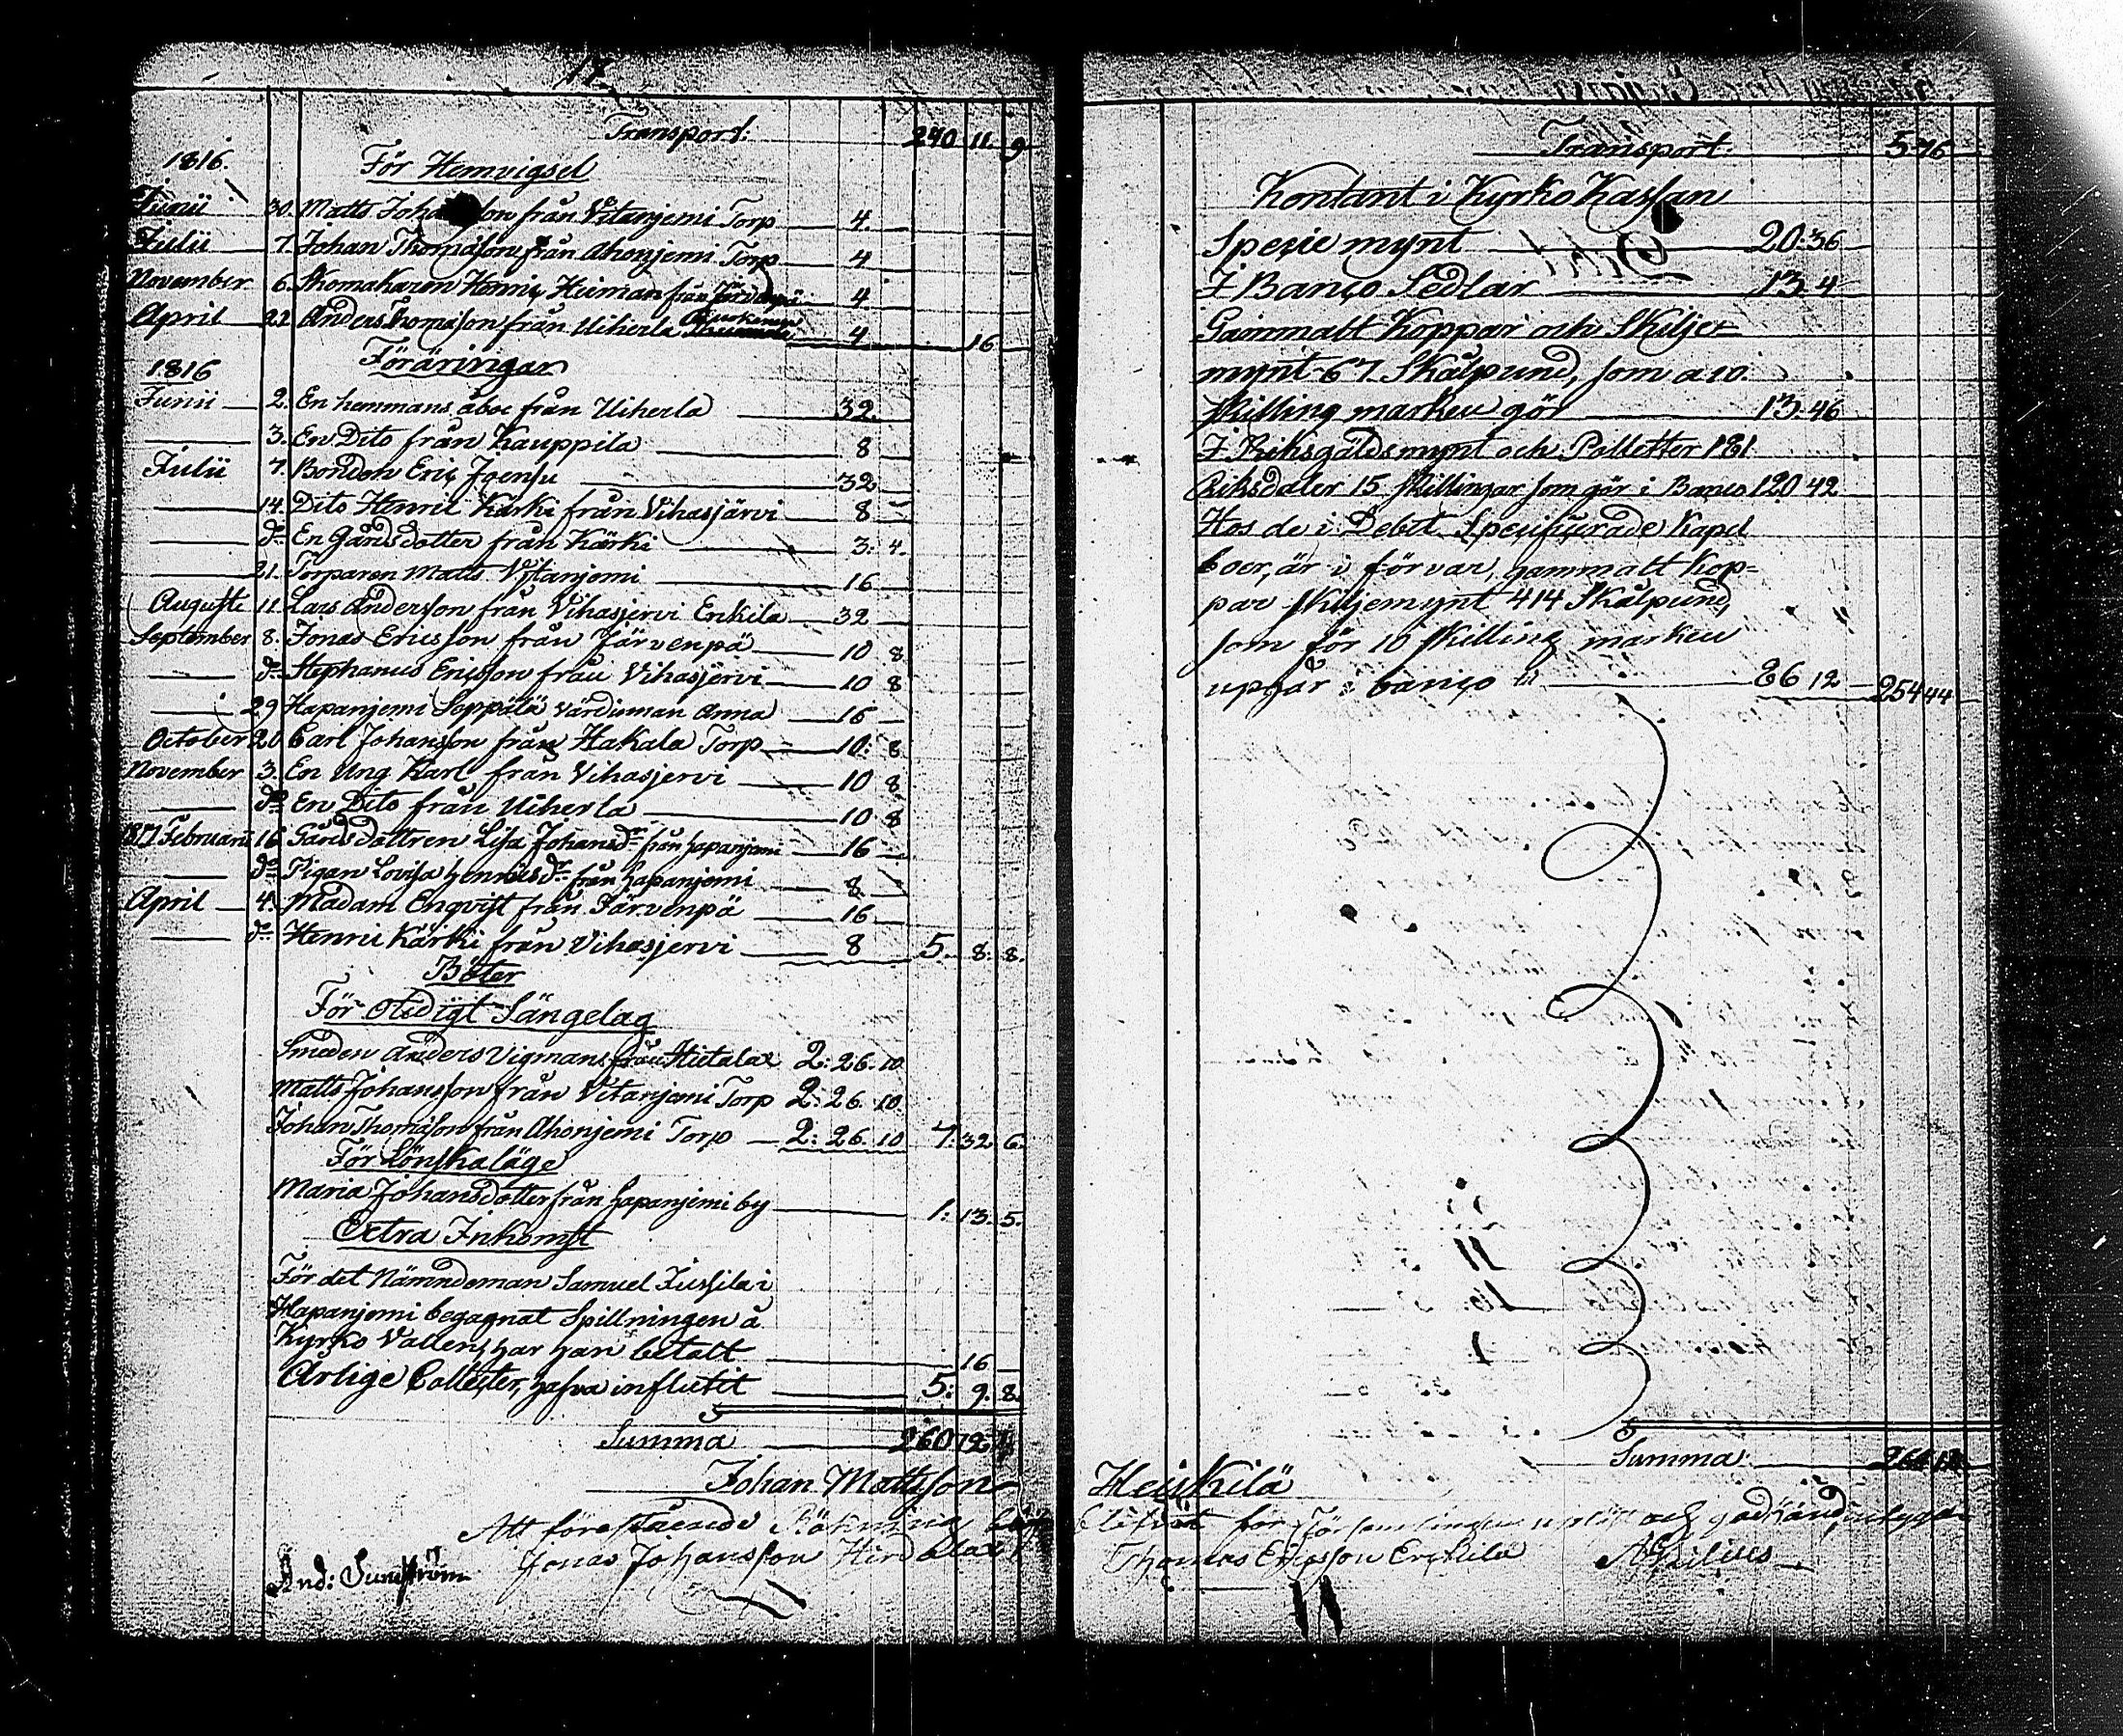 17
Transport: 240 11. 9
1816. För Hemvigsel
Junii 30. Matts Johansson från Vitanjemi Torp 4.
Julii 7. Johan Thomasson från Ahonjemi Torp 4
November 6. Skomakaren Henric Heiman från Järvenpä 4
April 22 Anders Thomasson från Uiherla 4 16
Föräringar
1816
Junii 2. En hemmans åboe från Uiherla 32.
3. En Dito från Kauppila 8
Julii 7. Bonden Eric Joensu 32
14. Dito Henric Kärki från Vihasjärvi 8
do En Gårdsdotter från Kärki 3: 4.
21. Torparen Matts Vitanjemi 16
Augusti 11. Lars Andersson från Vihasjervi Erkila 32
September 8. Jonas Ericsson från Järvenpä 10 8
do Stephanus Ericsson från Vihasjärvi 10 8
29 Hapanjemi Seppälä värdinnan Anna 16
October 20 Carl Johansson från Hakala Torp 10: 8
November 3. En Ung Karl från Vihasjervi 10 8
do En Dito från Uiherla 10 8
1817 Februarii 16 Gårdsdottren Lisa Johansdr från Hapanjemi 16
do Pigan Lovisa Henricsdr från Hapanjemi 8
April 4. Madam Enqvist från Järvenpä 16
do Henric Kärki från Vihasjervi 8 5. 8. 8.
Böter
För Otidigt Sängelag
Smeden Anders Vigman från Hietala 2: 26. 10
Matts Johansson från Vitanjemi Torp 2: 26. 10.
Johan Thomasson från Ahonjemi Torp 2: 26. 10 7. 32. 6.
För Lönskaläge
Maria Johansdotter från Hapanjemi by 1: 13. 5.
Extra Inkomst
För det Nämndeman Samuel Jussila i
Hapanjemi begagnat Spillningen å
Kyrko Vallen, har han betalt 16
Årlige Collecter, hafva influtit 5: 9. 8.
Summa 260 12
Johan Mattsson
Att förestående Räkning
Jonas Johansson
And: Sundström
Transport. 5 16
Kontant i Kyrko Kassan
Specie mynt 20: 36
I Banco Sedlar 13. 4
Gammalt Koppar och Skilje=
mynt 67. Skålpund, som a 10.
skilling marken gör 13. 46
I Riksgäldsmynt och Polletter 181
Riksdaler 15 skillingar som gör i Banco 120 42
Hos de i Debet Specificerade Kapel
boer, är i förvar, gammalt Kop=
par skiljemynt 414 Skålpund,
som för 10 skilling marken
upgår i banco til 86 12 254 44
Summa 260 12
Heiskilä
blifvit för Församlingen upläst och godkänd, intyga
Thomas Ericsson Erkila